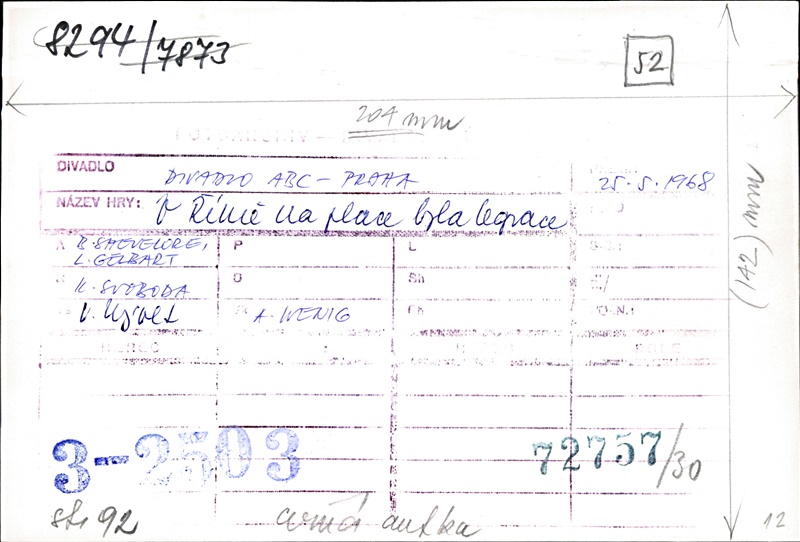 8294/7873
52
204 mm
DIVADLO DIVADLO ABC – PRAHA 25. 5. 1968
NÁZEV HRY: V Římě na place byla legrace
R. SHEVELOVE, P L
L. GELBART
K. SVOBODA O Sh
A. WENIG
(142) mm
3-2503 72757/30
str 92
12